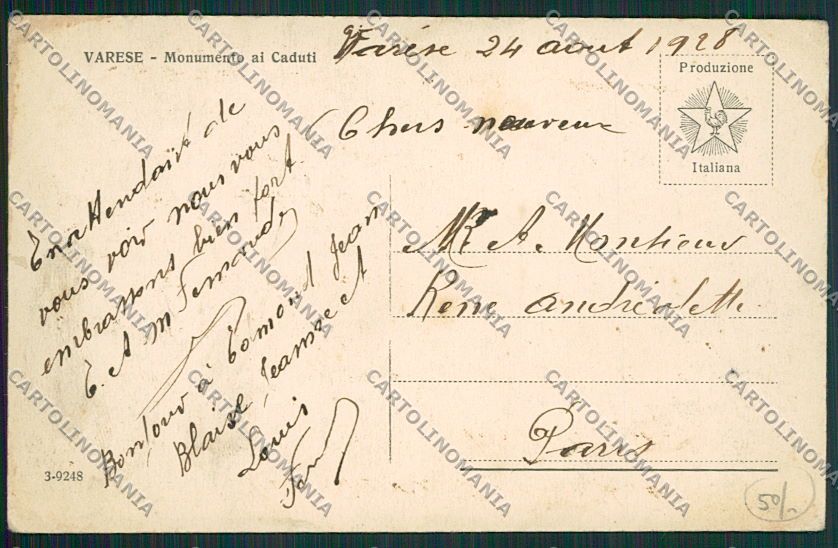 VARESE - Monumento ai Caduti
Varése 24 aout 1928
Produzione
Italiana
Chers neuveux
En attendant de
vous voir nous vous
embrassons bien fort
E. et M Fernande
Bonjour à Edmond Jean
Blaise, Jeanne et
Louis
Mr A. Montieur
Rene andréoletti
Paris
3-9248
50/-
CARTOLINOMANIA